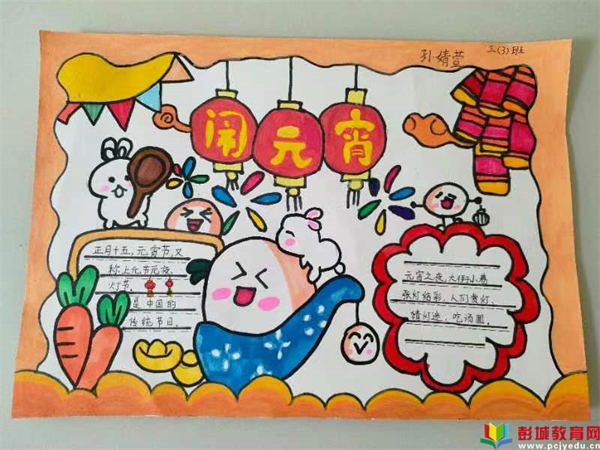 孙婧萱
三(3)班
闹元宵
正月十五,元宵节,又
称上元节元夜、
灯节
是中国的
传统节日。
元宵之夜,大街小巷
张灯结彩,人们赏灯、
猜灯迷,吃汤圆,
彭城教育网
www.pcjyedu.cn